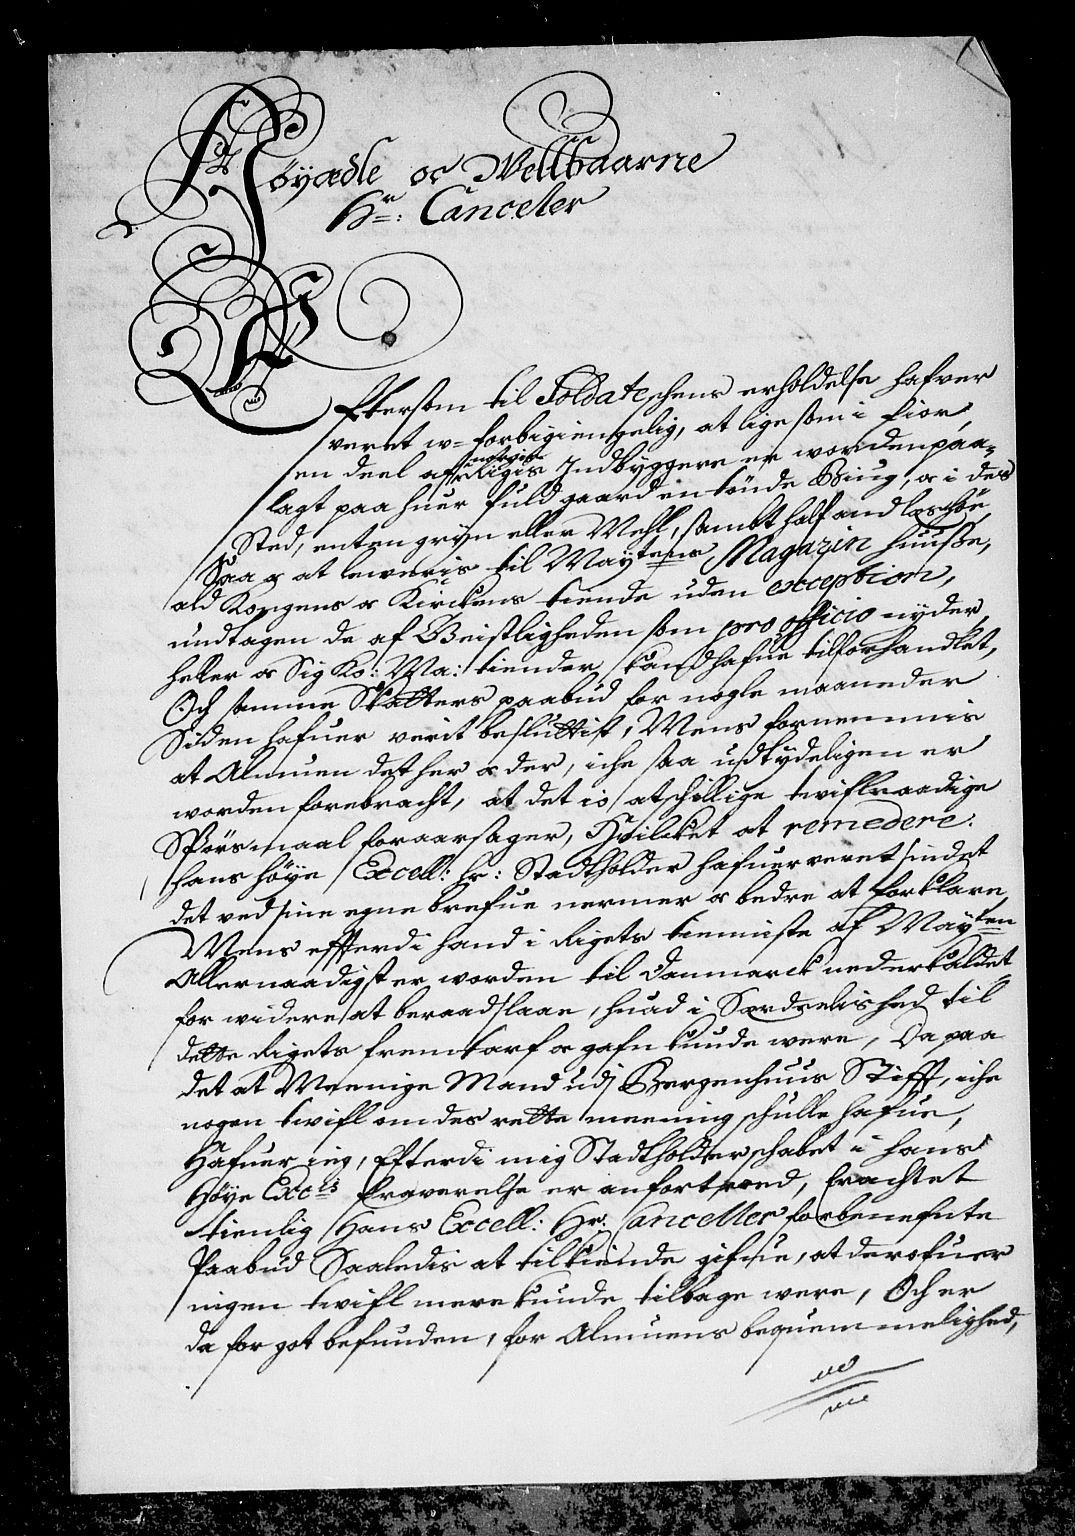 Høyædle oc Wellbaarne
Hr: Canceler
Eftersom til Soldateschens erholdelse hafver
veret w=forbigiengelig, at lige som i fior,
en deel af Rigis norgis Indbyggere er worden paa=
lagt paa huer fuld gaard en tønde Biug, oc i des
Sted, enten gryn eller Mehl, sambt half and læs høe,
Saa oc at leweris til Maytens Magazin huusse,
ald Kongens oc Kirckens tiende uden exception,
undtagen de af Geistligheden som pro officio nyder,
heller oc Sig Ko: Ma: tiender kand hafue tilforhandlet,
Och samme Skatters paabud for nogle maaneder
Siden hafuer verit besluttist, Mens fornemmis
at Almuen det her oc der, iche saa udtydeligen er
worden forebracht, at det io atschillige twiflraadige
Spørsmaal foraarsager, Huilcket at remedere.
hans høye Excell: hr: Stadtholder hafuer veret sindet
det ved sine egne brefue nermer oc bedre at forklare,
Mens effterdi hand i Rigets tienniste af Mayten
Allernaadigst er worden til Danmarck nederkaldet
for widere at beraadslaae, huad i Særdeelished til
dette Rigets fremtarf oc gafn kunde were, Da paa
det at Meenige Mand udj Bergenhuus Stifft, iche
nogen twifl om des rette meening schulle hafue,
Hafuer ieg, Efterdi mig Stadtholderschabet i hans
Høye Excis fraverelse er anfortroed, Erachtet
tienlig Hans Excell: Hr. Canceller forbenefnte
Paabud Saaledis at tilkiende gifue, at derofuer
ingen twifl mere kunde tilbage were, Och er
da for got befunden, for Almuens bequemmelighed,